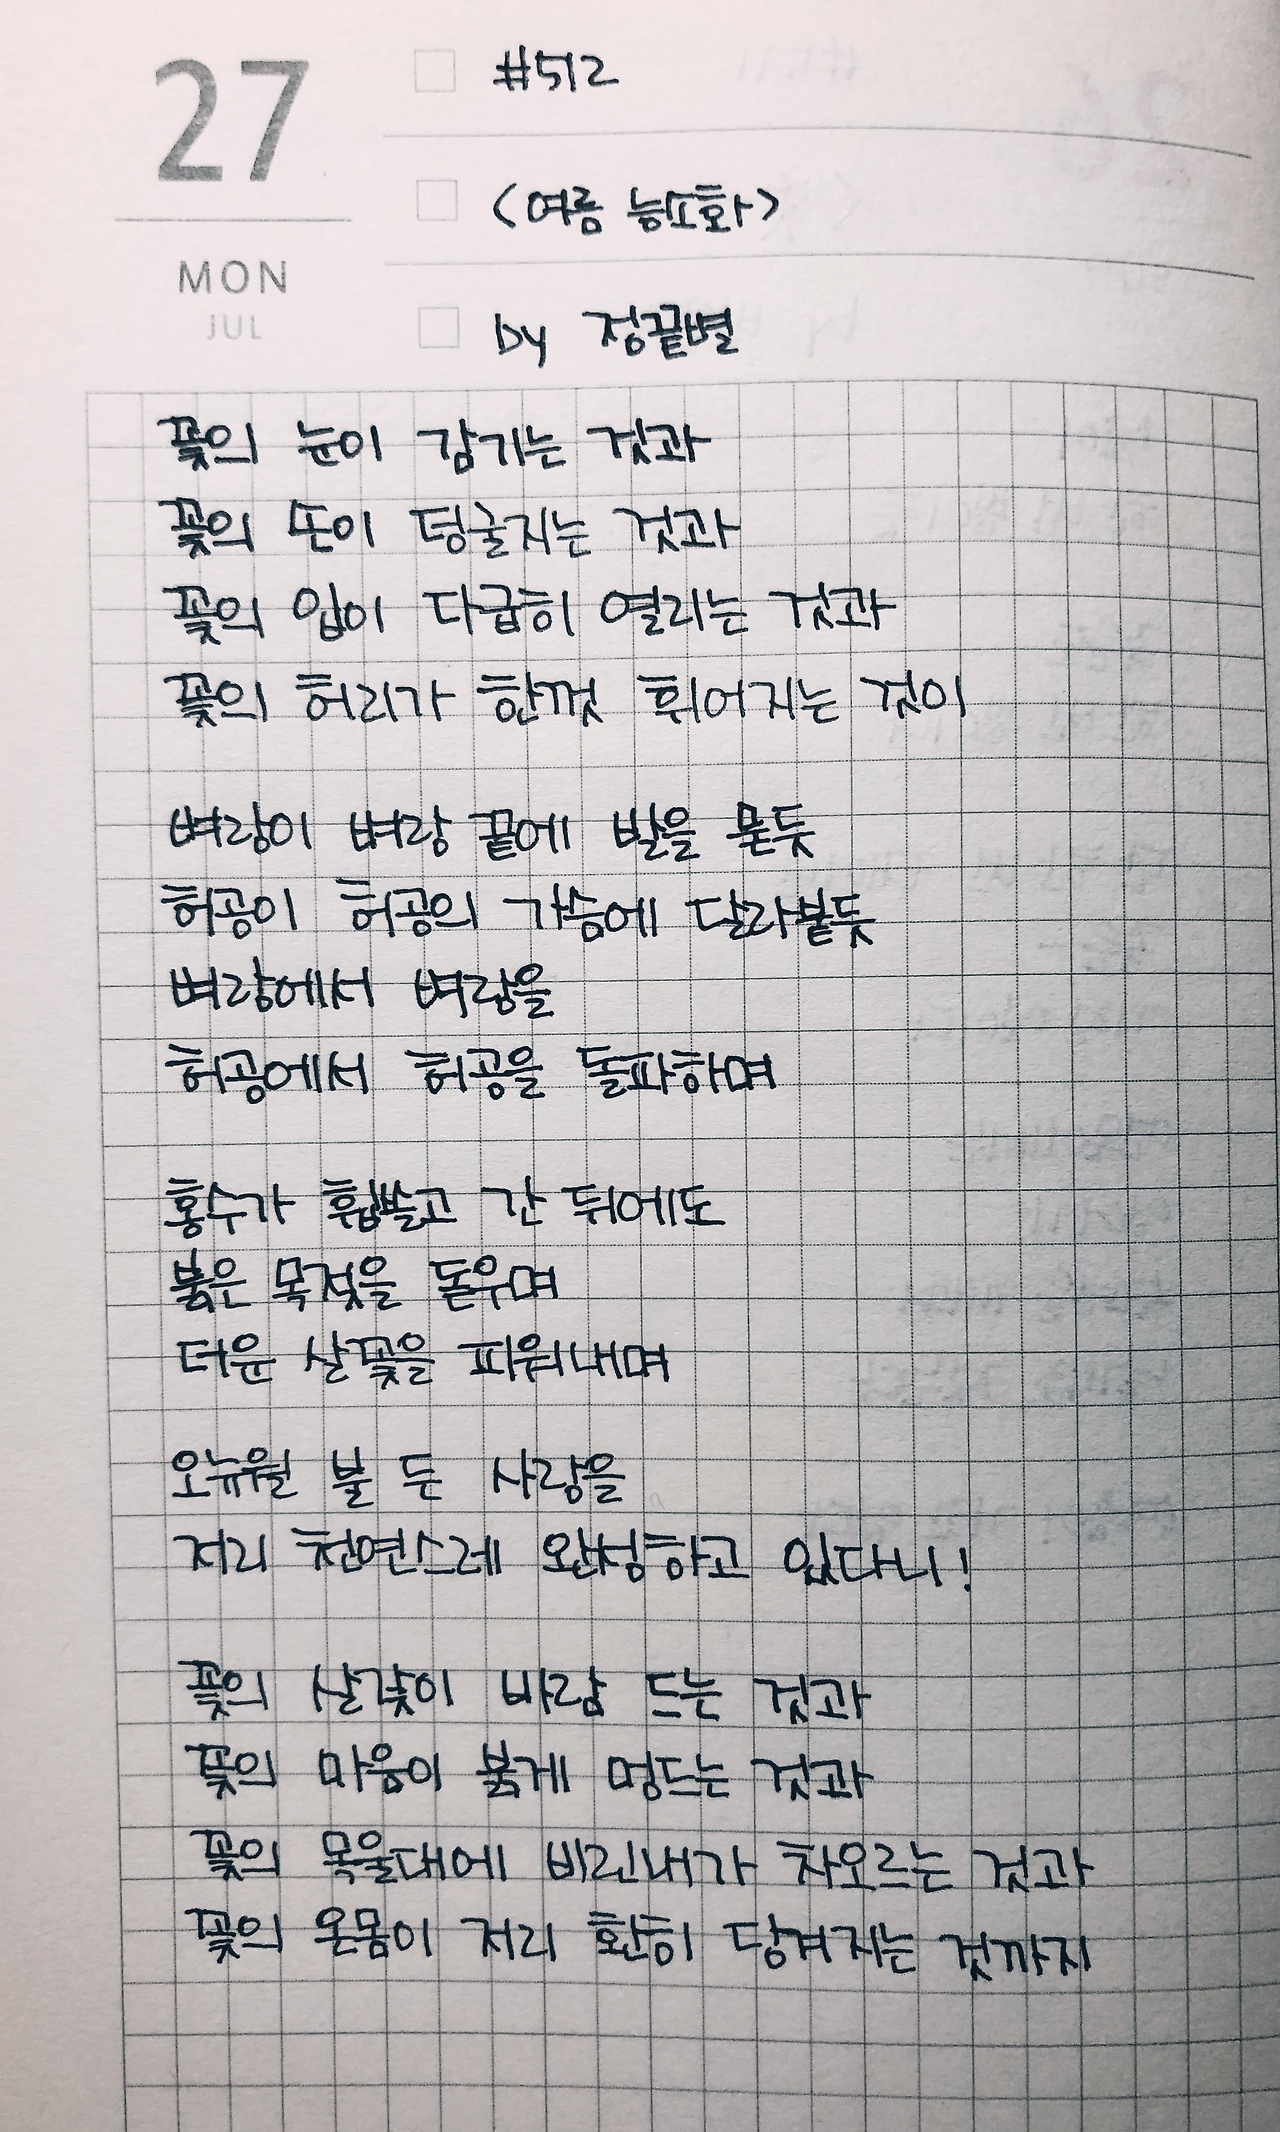 27
MON
JUL
#512
<여름 능소화>
by 정끝별
꽃의 눈이 감기는 것과
꽃의 손이 덩굴지는 것과
꽃의 입이 다급히 열리는 것과
꽃의 허리가 한껏 휘어지는 것이
벼랑이 벼랑 끝에 발을 묻듯
허공이 허공의 가슴에 달라붙듯
벼랑에서 벼랑을
허공에서 허공을 돌파하며
홍수가 휩쓸고 간 뒤에도
붉은 목젖을 돋우며
더운 살꽃을 피워내며
오뉴월 불 든 사랑을
저리 천연스레 완성하고 있다니!
꽃의 살갗이 바람 드는 것과
꽃의 마음이 붉게 멍드는 것과
꽃의 목울대에 비린내가 차오르는 것과
꽃의 온몸이 저리 환히 당겨지는 것까지